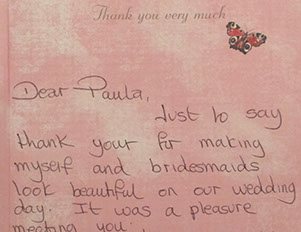 Thank you very much
Dear Paula,
Just to say
thank your for making
myself and bridesmaids
look beautiful on our wedding
day. It was a pleasure
meeting you.